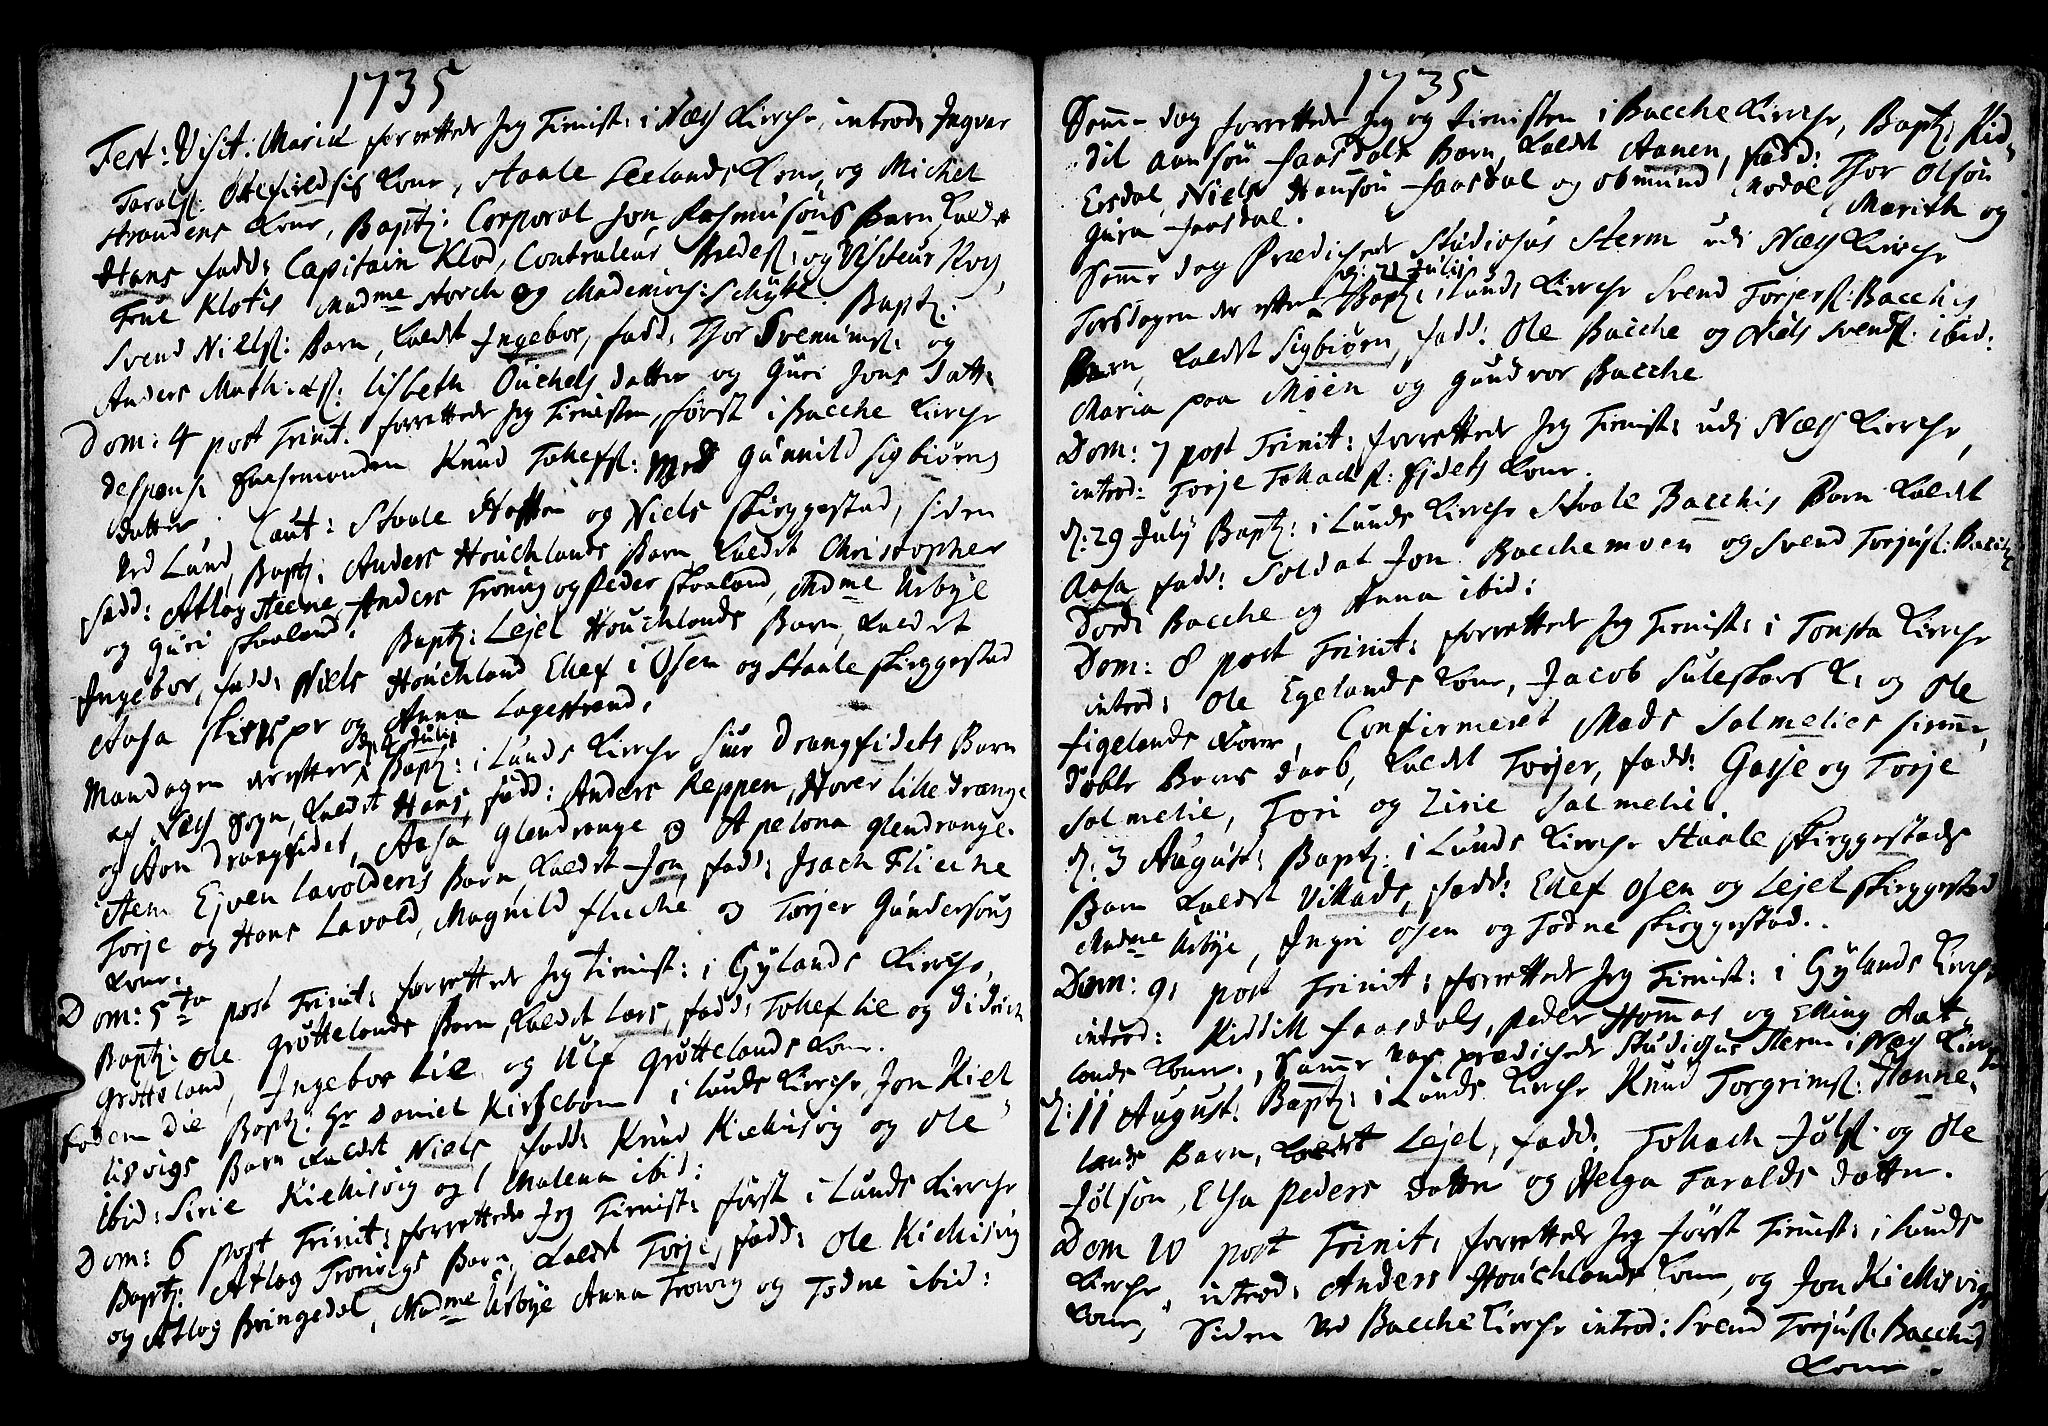 1735
Fest: Visit: Mariæ forrettede Jeg Tienist: i Næss Kirche, introd: Ingvar
Taralss: Ottefieldsis Kone, Staale Seelands Kone og Michel
Strandens Kone, Baptz: Corporal Jon Rasmusøns Barn, Kaldet
Hans fadd: Capitain Klod, Contraleur Bredess: og Visiteur Roy,
Frue Klotis Madme Storch og Schytt. Baptz:
Svend Nielss: Barn, Kaldet Ingebor, fadd: Thor Svenungs: og
Anders Mathiæss: Lisbeth Ouchels datter og Guri Jons Datt:
Dom: 4 post Trinit. forrettede Jeg Tienisten, først i Bacche Kirche
despons: Knud Tollefss: Med Gunnild Sigbiørns
datter. Caut: Staale og Niels Skieggestad, siden
Ved Lund, Baptz: Anders Houchlands Barn Kaldet Christopher
fadd: Atlog Steene, Anders Tronvig og Peder Skaaland, Madme Urbye
og Guri Skaaland. Baptz: Lejel Houchlands Barn, Kaldet
Ingebor, fadd: Niels Houchland Ellef i Osen og Staale Skieggestad
Aasa og Anna Lagestrand.
d: 4 Julij
Mandagen derefter Baptz: i Lunds Kirche Siur Drangfidets Barn
af Næss Sogn, Kaldet Hans, fadd: Anders Reppen, Hover lille Drange
og Aon Drangfidet, Aasa Glendrange og Apelona Glendrange.
Item Ejven Lavolderis Barn, Kaldet Jon, fadd: Isach Fliche
Torje og Hans Lavold, Magnild Fliche og Torjer Gundersøns
Kone.
Dom: 5ta post Trinit: forrettede Jeg Tienist: i Gylands Kirche,
Baptz: Ole Grøttelands Barn Kaldet Lars, fadd: Tollef Lie og Didrich
Grøtteland, Ingebor Lie og Ulf Grøttelands Kone.
Eodem die Baptz: Hr Daniel Kirsebom i Lunds Kirche, Jon Kiel-
lisvigs Barn Kaldet Niels fadd: Knud Kiellisvig og Ole
ibid: Sirie Kiellisvig og Malena ibid:
Dom: 6 post Trinit: forrettede Jeg Tienist: først i Lunds Kirche
Baptz: Atlog Tronvigs Barn, Kaldet Torje, fadd: Ole Kiellisvig
og Atlog Bringedal, Madme Urbye Anna Trovig og Todne ibid:
1735
Samme dag forrettede Jeg og Tienisten i Bacche Kirche, Baptz: Kid-
dil Aansøn Faasdals Barn, Kaldet Aanen, fadd: Thor Olsøn
Ersdal, Niels Hansøn Faasdal og Osmund Modal, Marith og
Gura Faasdal.
Samme dag Prædichede Studiosus Sterm udi Næss Kirche
d: 21 Julij
Torsdagen der efter Baptz: i Lunds Kirche Svend Torjerss: Bacchis
Barn, Kaldet Sigbiørn, fadd: Ole Bacche og Niels Svends: ibid:
Maria paa Moen og Gundvor Bacche
Dom: 7 post Trinit: forrettede Jeg Tienist: udi Næss Kirche,
introd: Torje Tollachs: Fidets Kone.
d: 29 July Baptz: i Lunds Kirche Staale Bacchis Barn Kaldet
Aasa, fadd: Soldat Jon Bacchemoen og Svend Torjuss: Bacche
Dorde Bacche og Anna ibid:
Dom: 8 post Trinit: forrettede Jeg Tienist: i Tonsta Kirche
introd: Ole Egelands Kone, Jacob Suleskars K: og Ole
Figelands Kone, Confirmeret Mads Salmelies hiemme
døbte Barns daab, Kaldet Torjer, fadd: Gasse og Torje
Salmelie, Tori og Zirie Salmelie.
d: 3 August: Baptz: i Lunds Kirche Staale Skieggestads
Barn Kaldet Villads, fadd: Ellef Osen og Lejel Skieggestad
Madme Urbye, Ingri Osen og Todne Skieggestad.
Dom: 9: post Trinit: forrettede Jeg Tienist: i Gylands Kirche
introd: Kiddill Faasdals, Peder Hommes og Elling Øat-
lands Koner., Samme Dag prædichede Studiosus Sterm i Næss Kirche
d: 11 August: Baptz: i Lunds Kirche Knud Torgrims: Hanne-
lands Barn, Kaldet Lejel, fadd: Tollach Jølss: og Ole
Jølsøn, Elsa Peders datter og Helga Taralds datter.
Dom 10 post Trinit: forrettede Jeg først Tienist: i Lunds
Kirche, introd: Anders Houchlands Kone, og Jon Kiellisvigs
Kone, Siden Ved Bacche Kirche introd: Svend Torjuss: Bacchis
Kone.